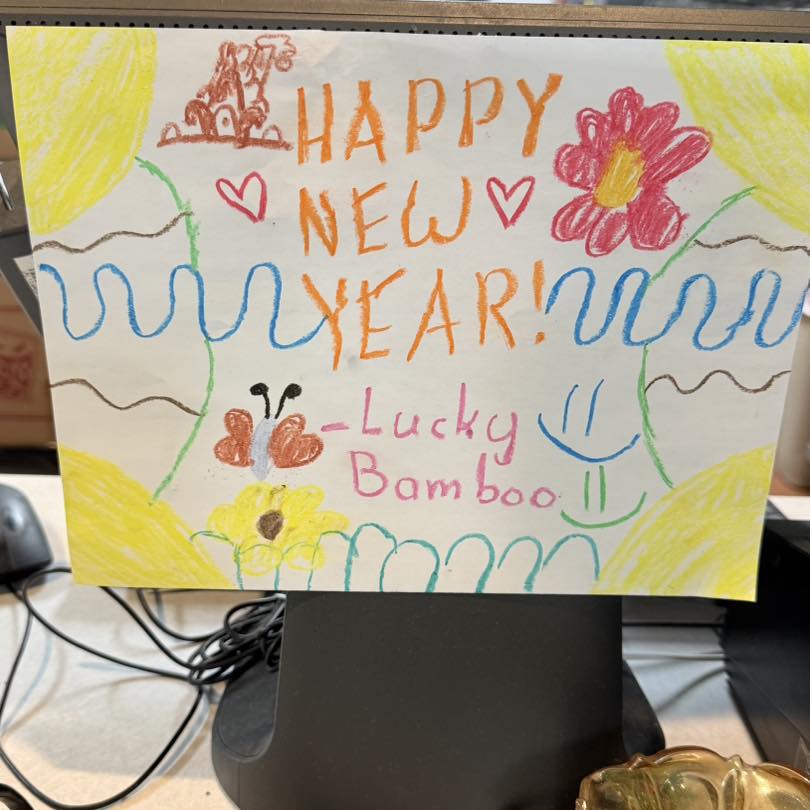 HAPPY
NEW
YEAR!
-Lucky
Bamboo